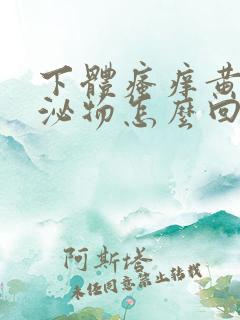 下體瘙癢黃
泌物怎麼回
阿斯塔
未經同意禁止轉載